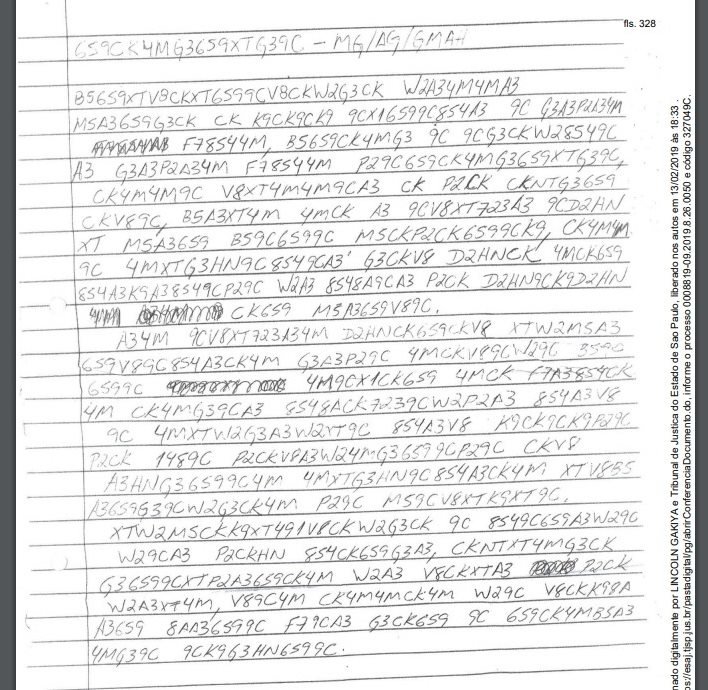 fls. 328
659CK4MG3659XTG39C - MG/AG/GMAH
B5659XTV8CKXT6599CV8CKW2G3CK W2A34M4MA3
M5A3659G3CK CK K9CK9CK9 9CX16599C854A3 9C G3A3P2A34M
F78544M, B5659CK4MG3 9C 9CG3CKW28549C
A3 G3A3P2A34M F78544M P29C659CK4MG3659XTG39C,
CK4M4M9C V8XT4M4M9CA3 CK P2CK CKNTG3659
CKV89C, B5A3XT4M 4MCK A3 9CV8XT723A3 9CD2HN
XT M5A3659 B59C6599C M5CKP2CK6599CK9, CK4M4M
9C 4MXTG3HN9C8549CA3 G3CKV8 D2HNCK 4MCK659
854A3K9A38549CP29C W2A3 8548A9CA3 P2CK D2HN9CK9D2HN
CK659 M5A3659V89C.
A34M 9CV8XT723A34M D2HNCK659CKV8 XTW2M5A3
659V89C854A3CK4M G3A3P29C 4MCKV89CW29C 3590
6599C 4M9CX1CK659 4MCK F7A3854CK
4M CK4MG39CA3 8548ACK7239CW2P2A3 854A3V8
9C 4MXTW2G3A3W2XT9C 854A3V8 K9CK9CK9P29C
P2CK 1989C P2CKV8A3W24MG36599CP29C CKV8
A3HNG36599C4M 4MXTG3HN9C854A3CK4M XTV8B5
A3659G39CW2G3CK4M P29C M59CV8XTK9XT9C.
XTW2M5CKK9XT491V8CKW2G3CK 9C 8549C659A3W29C
W29CA3 P2CKHN 854CK659G3A3, CKNTXT4MG3CK
G36599CXTP2A3659CK4M W2A3 V8CKXTA3 P2CK
W2A3XT4M, V89C4M CK4M4MCK4M W29C V8CKK98A
A3659 8AA36599C F79CA3 G3CK659 9C 659CK4MB5A3
4MG39C 9CK9G3HN6599C.
nado digitalmente por LINCOLN GAKIYA e Tribunal de Justica do Estado de Sao Paulo, liberado nos autos em 13/02/2019 às 18:33 .
ps://esaj.tjsp.jus.br/pastadigital/pg/abrirConferenciaDocumento.do, informe o processo 0008819-09.2019.8.26.0050 e código 327049C.